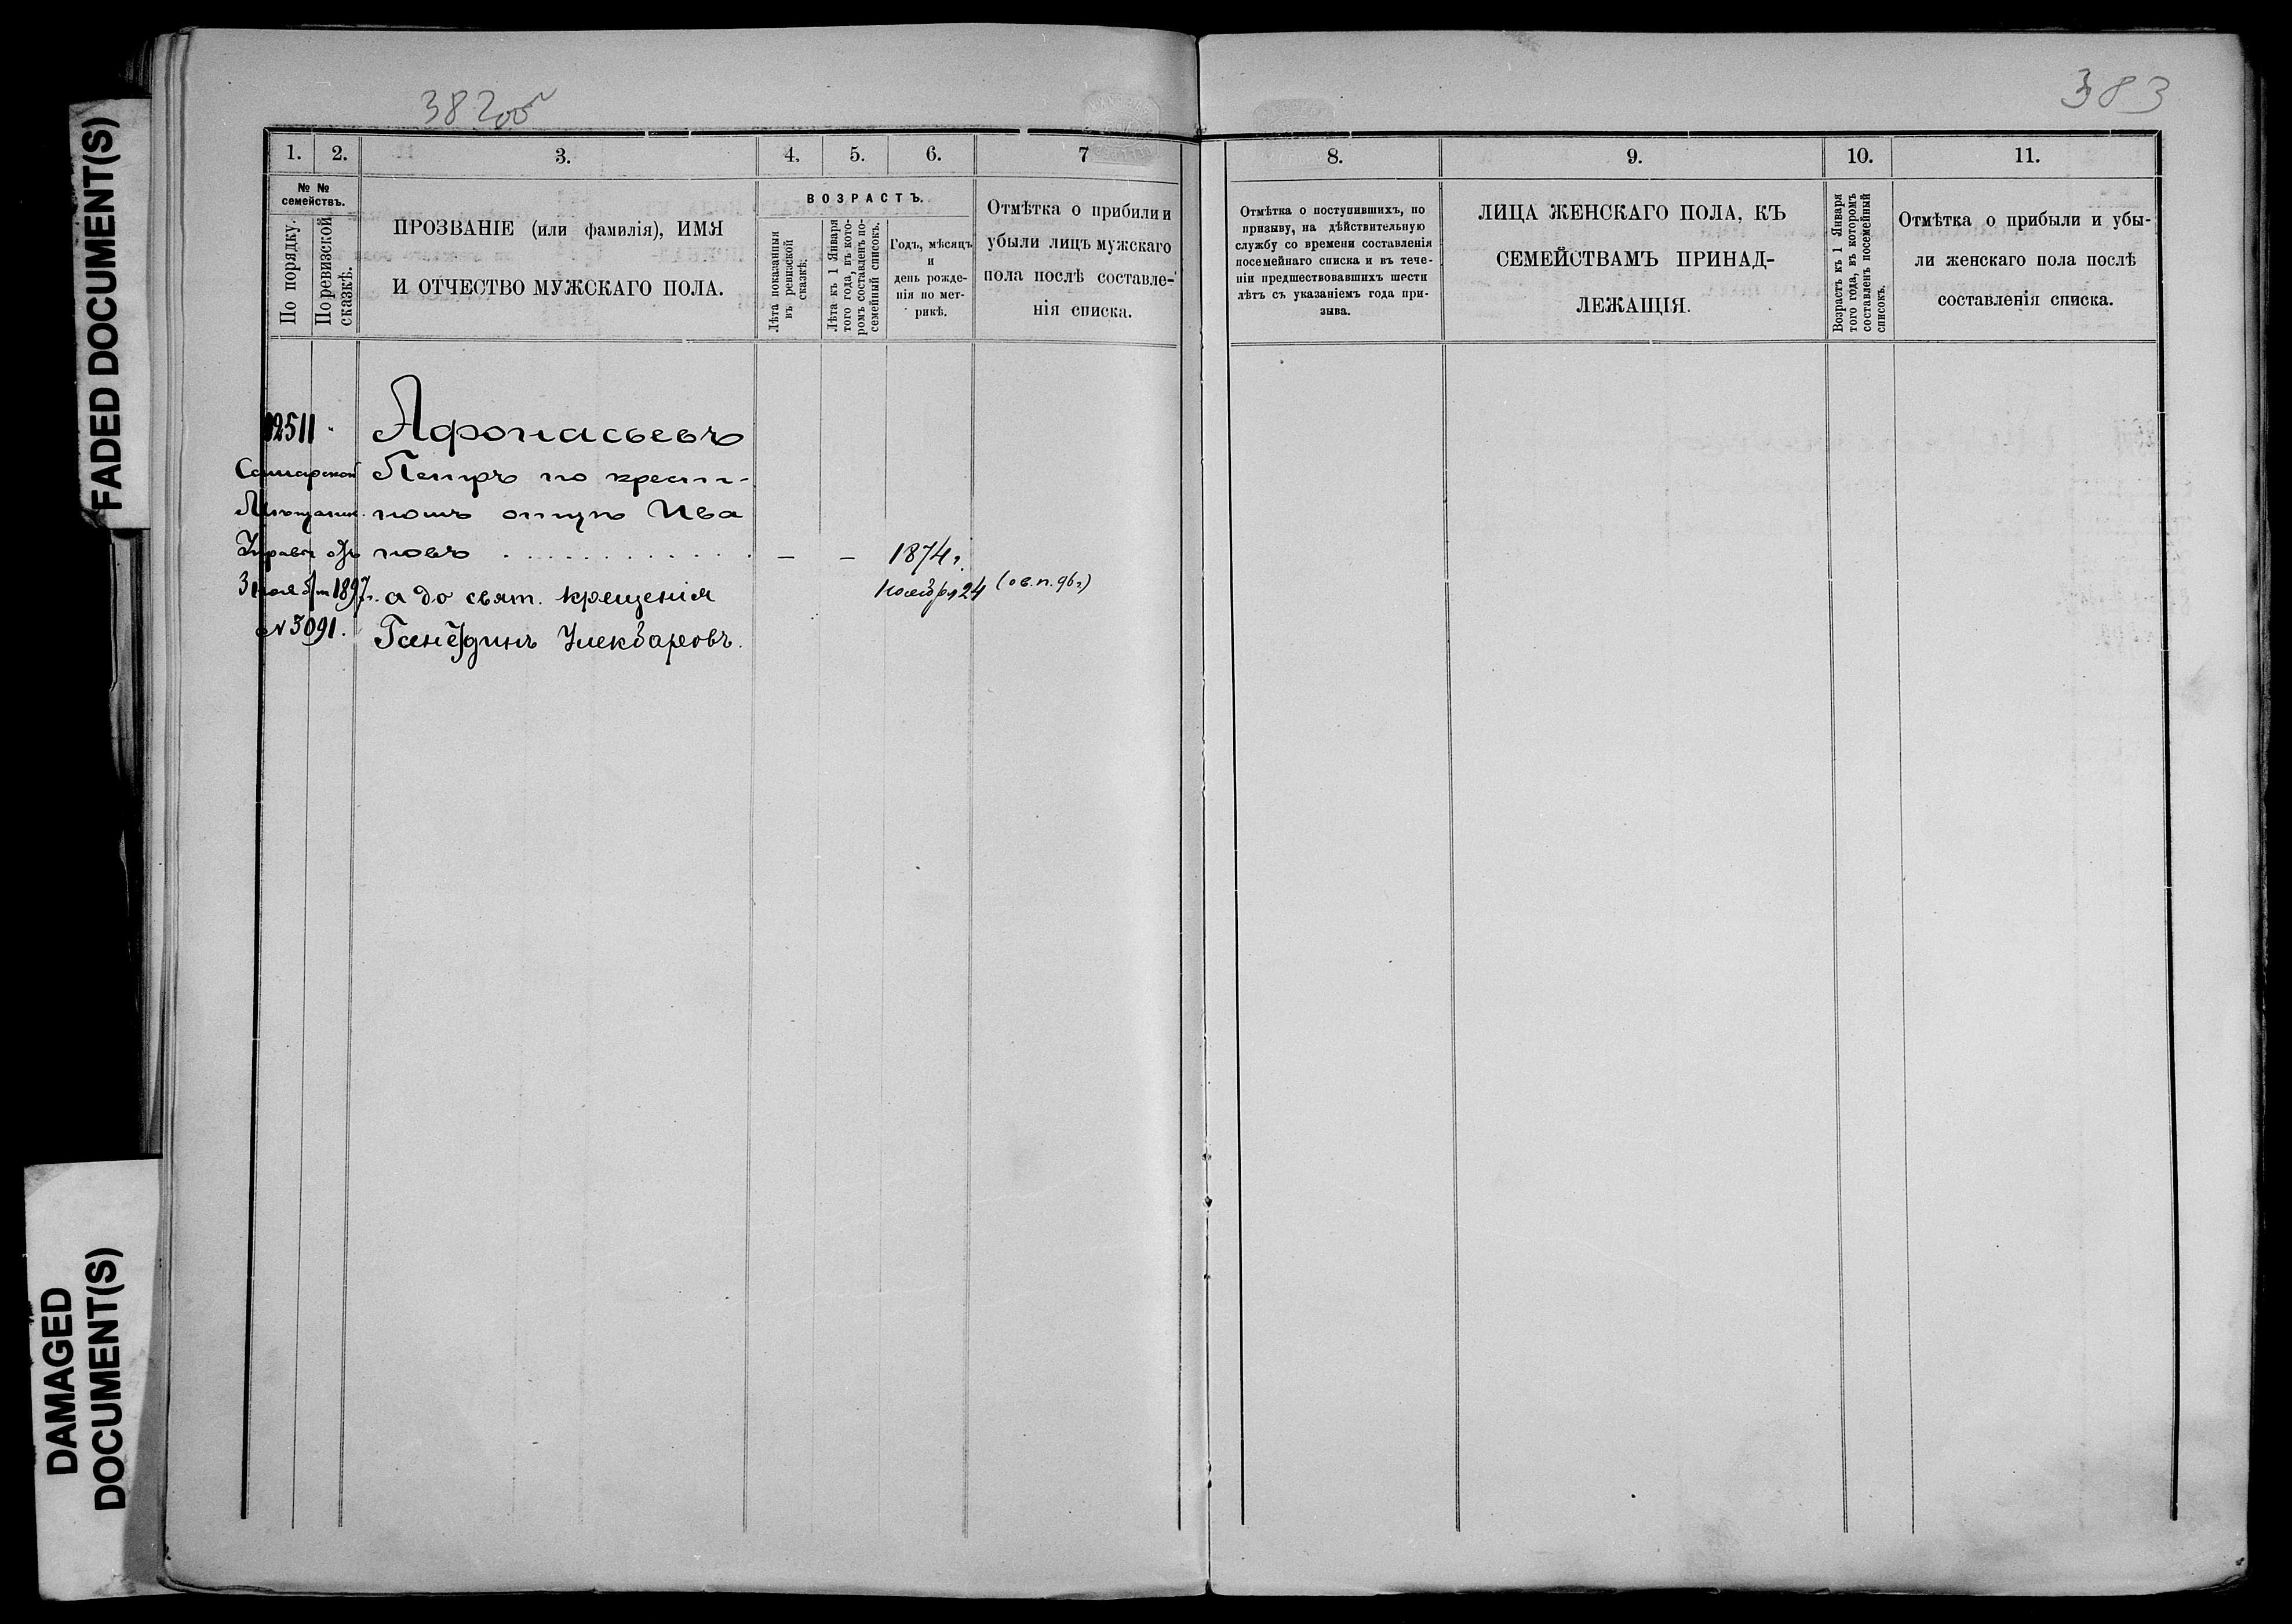 FADED DOCUMENT(S)
DAMAGED
DOCUMENT(S)
382 об
383
1. 2. 3. 4. 5. 6. 7
№ №
семействъ.
По порядку.
По ревизской
сказкѣ.
ПРОЗВАНІЕ (или фамилія), ИМЯ
И ОТЧЕСТВО МУЖСКАГО ПОЛА.
ВОЗРАСТЪ.
Лѣта показанныя
въ ревизской
сказкѣ.
Лѣта къ 1 Января
того года, въ кото-
ромъ составленъ по-
семейный списокъ.
Годъ, мѣсяцъ
и
день рожде-
нія по мет-
рикѣ.
Отмѣтка о прибыли и
убыли лицъ мужскаго
пола послѣ составле-
нія списка.
12511
Афонасьевъ
Самарской
Петръ по крест-
Мѣщанск.
номъ отцѣ Ива
Управы отъ
новъ
— — 1874 г.
3 ноября 1897 г.
а до свят. крещенія
Ноября 24 (о в.п. 96 г)
№ 5091.
8. 9. 10. 11.
Отмѣтка о поступившихъ, по
призыву, на дѣйствительную
службу со времени составленія
посемейнаго списка и въ тече-
ніи предшествовавшихъ шести
лѣтъ съ указаніемъ года при-
зыва.
ЛИЦА ЖЕНСКАГО ПОЛА, КЪ
СЕМЕЙСТВАМЪ ПРИНАД-
ЛЕЖАЩІЯ.
Возрастъ къ 1 Января
того года, въ которомъ
составленъ посемейный
списокъ.
Отмѣтка о прибыли и убы-
ли женскаго пола послѣ
составленія списка.